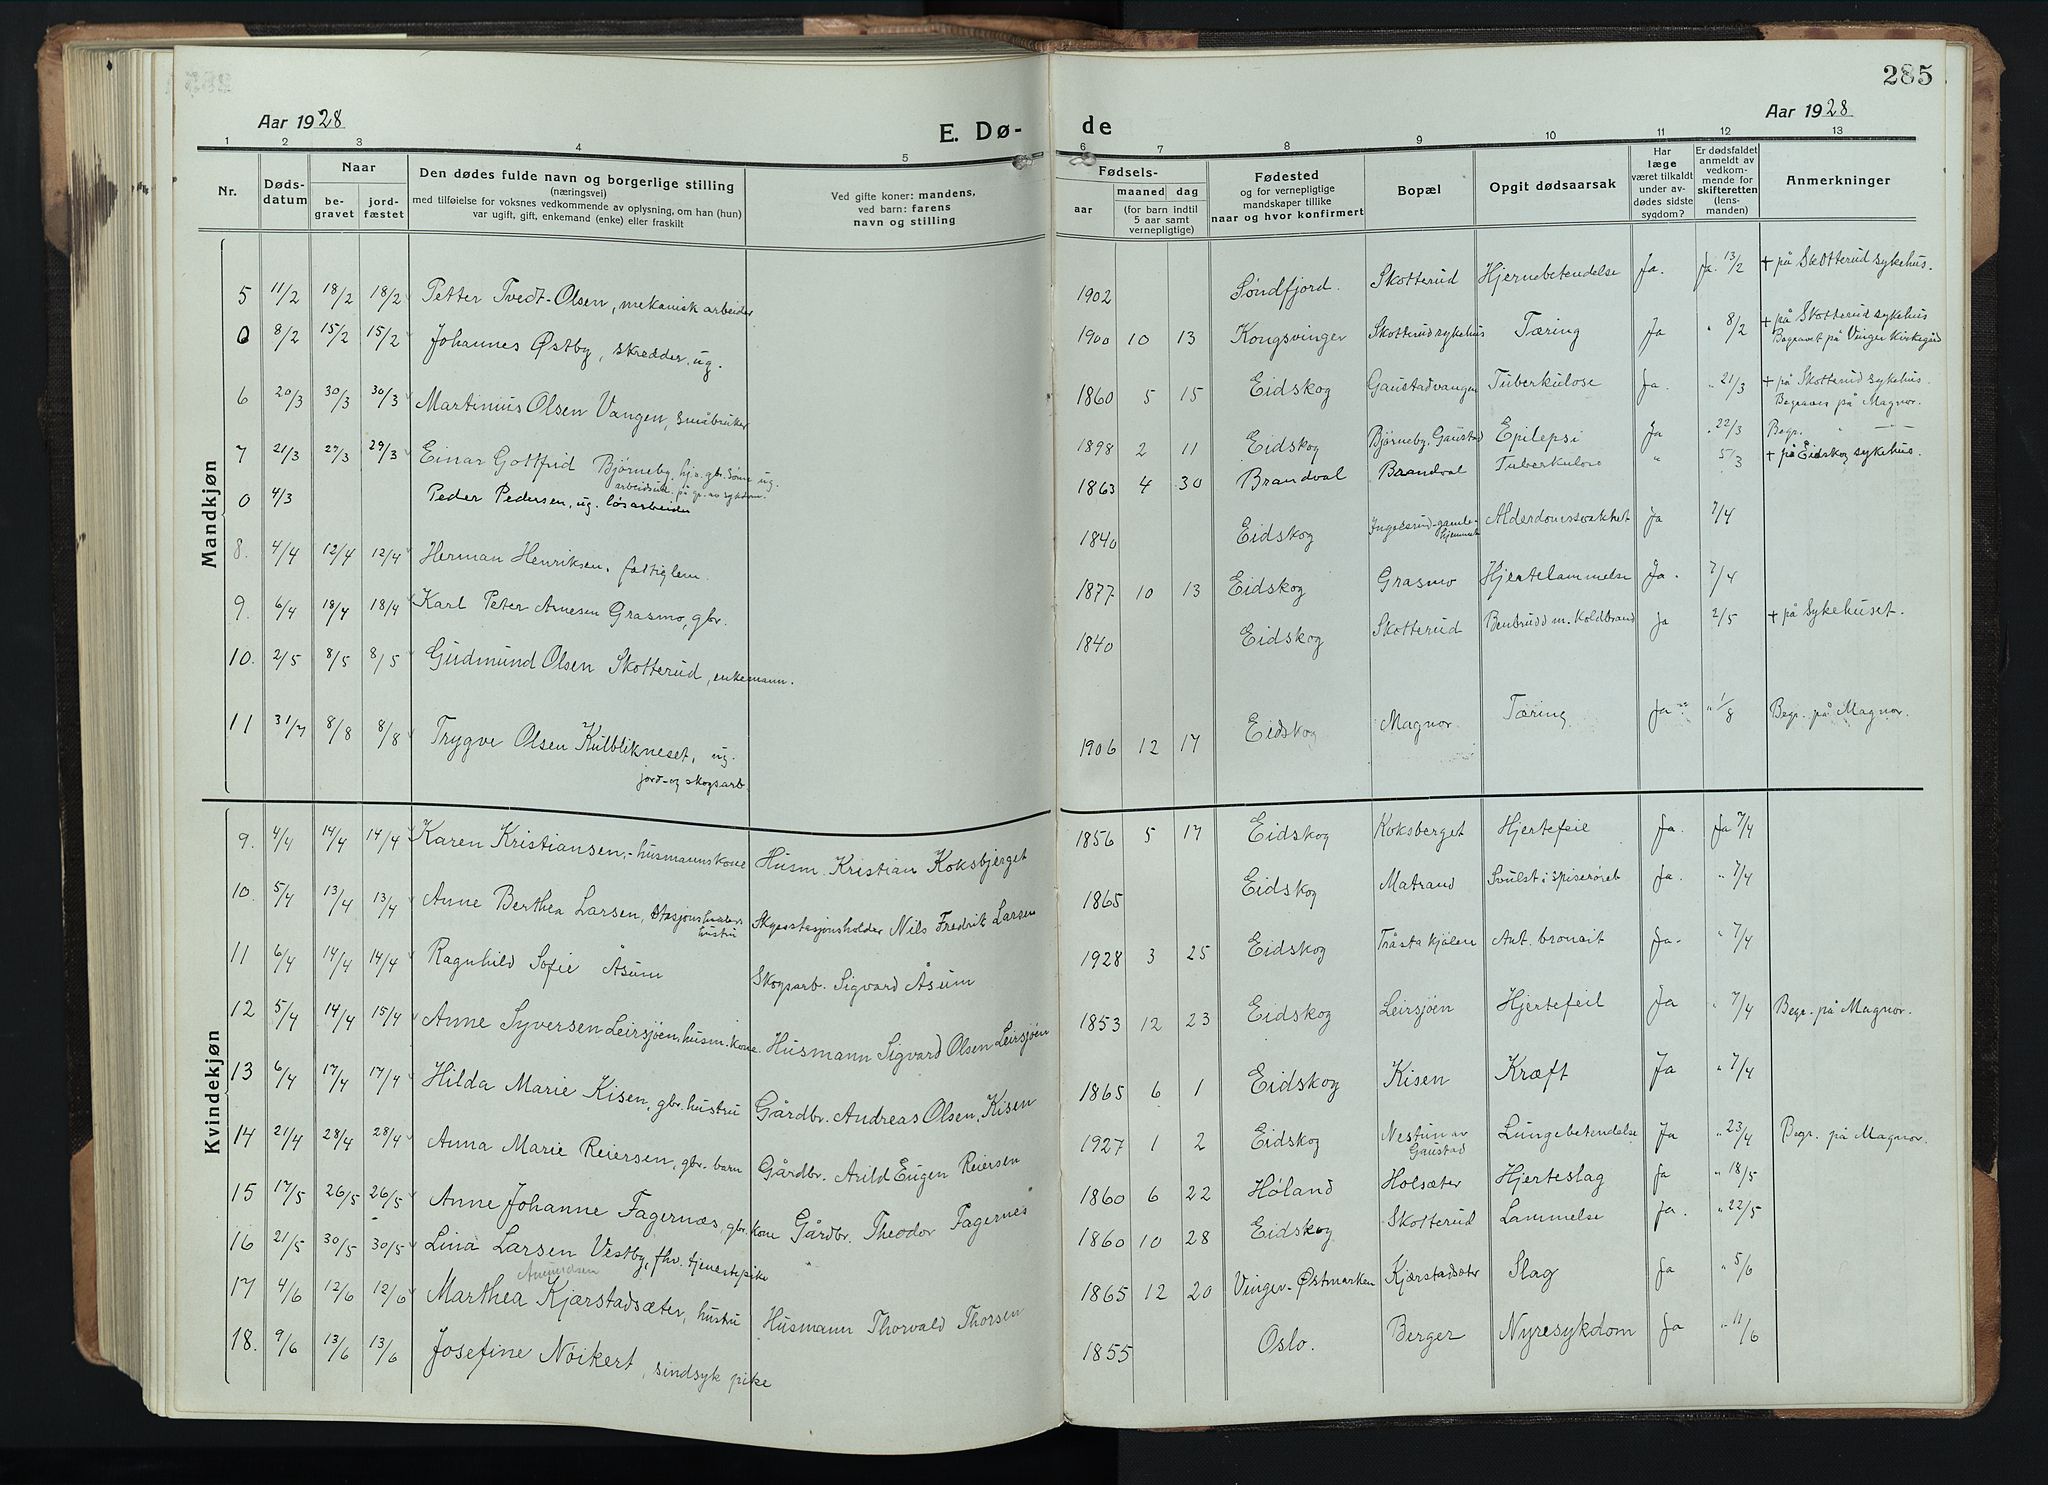 285
Aar 1928
E. Dø-
de
Aar 1928
1 2 3 4 5 6 7 8 9 10 11 12 13
Nr.
Døds-
datum
Naar
be-
gravet
jord-
fæstet
Den dødes fulde navn og borgerlige stilling
(næringsvei)
med tilføielse for voksnes vedkommende av oplysning, om han (hun)
var ugift, gift, enkemand (enke) eller fraskilt
Ved gifte koner: mandens,
ved barn: farens
navn og stilling
Fødsels-
aar
maaned dag
(for barn indtil
5 aar samt
vernepligtige)
Fødested
og for vernepligtige
mandskaper tillike
naar og hvor konfirmert
Bopæl
Opgit dødsaarsak
Har
læge
været tilkaldt
under av-
dødes sidste
sygdom?
Er dødsfaldet
anmeldt av
vedkom-
mende for
skifteretten
(lens-
manden)
Anmerkninger
Mandkjøn
5 11/2 18/2 18/2 Petter Tvedt-Olsen, mekanisk arbeider 1902 Søndfjord. Skotterud Hjernebetendelse Ja. Ja. 13/2 + på Skotterud sykehus.
0 8/2 15/2 15/2 Johannes Østby, skredder, ug. 1900 10 13 Kongsvinger Skotterud sykehus Tæring Ja " 8/2 + på Skotterud sykehus
Begravet på Vinger kirkegård
6 20/3 30/3 30/3 Martinius Olsen Vangen, småbruker 1860 5 15 Eidskog Gaustadvangen Tuberkulose Ja. " 21/3 + på Skotterud sykehus.
Begraves på Magnor.
7 21/3 29/3 29/3 Einar Gottfrid Bjørneby, hjv. gbr. sønn ug. 1898 2 11 Eidskog Bjørneby, Gaustad Epilepsi Ja " 22/3 Begr. " —
arbeidsud. på gr. av sykdom.
0 4/3 Peder Pedersen, ug. løsarbeider 1863 4 30 Brandval Brandval Tuberkulose " 5/3 + på Eidskog sykehus.
8. 4/4 12/4 12/4 Herman Henriksen, fattiglem. 1840 Eidskog Ingelsrud-gamle-
hjemmet Alderdomssvakhet Ja 7/4
9. 6/4 18/4 18/4 Karl Peter Arnesen Grasmo, gbr. 1877 10 13 Eidskog Grasmo Hjertelammelse Ja. 7/4
10. 2/5 8/5 8/5 Gudmund Olsen Skotterud, enkemann. 1840 Eidskog Skotterud Benbrudd m. Koldbrand Ja 2/5 + på Sykehuset.
11 31/7 8/8 8/8 Trygve Olsen Kulblikneset, ug. 1906 12 17 Eidskog Magnor Tæring Ja " 1/8 Begr. på Magnor.
jord- og skogsarb.
Kvindekjøn
9. 4/4 14/4 14/4 Karen Kristiansen, husmannskone Husm. Kristian Koksbjerget 1856 5 17 Eidskog Koksberget Hjertefeil Ja. Ja 7/4
10. 5/4 13/4 13/4 Anne Berthea Larsen, stasjonsholders
hustru Skysstasjonsholder Nils Fredrik Larsen 1865 Eidskog Matrand Svulst i spiserøret Ja. " 7/4
11 6/4 14/4 14/4 Ragnhild Sofie Åsum Skogsarb. Sigvard Åsum 1928 3 25 Eidskog Tråstakjølen Ant. bronait Ja. " 7/4
12 5/4 14/4 15/4 Anne Syversen Leirsjøen, husm. kone. Husmann Sigvard Olsen Leirsjøen 1853 12 23 Eidskog Leirsjøen Hjertefeil Ja " 7/4 Begr. på Magnor.
13 6/4 17/4 17/4 Hilda Marie Kisen, gbr. hustru Gårdbr. Andreas Olsen, Kisen 1865 6 1 Eidskog Kisen Kræft Ja " 7/4
14 21/4 28/4 28/4 Anna Marie Reiersen, gbr. barn Gårdbr. Arild Eugen Reiersen 1927 1 2 Eidskog Nestun av
Gaustad Lungebetendelse Ja " 23/4 Begr. på Magnor.
15 17/5 26/5 26/5 Anne Johanne Fagernæs, gbr. kone Gårdbr. Theodor Fagernes 1860 6 22 Høland Holsæter Hjerteslag Ja " 18/5
16 21/5 30/5 30/5 Lina Larsen Vestby, fhv. tjenestepike " 1860 10 28 Eidskog Skotterud Lammelse Ja. " 22/5
17 4/6 12/6 12/6 Marthea Kjærstadsæter, hustru Husmann Thorvald Thorsen 1865 12 20 Vinger-Østmarken Kjærstadsæter Slag Ja " 5/6
18. 9/6 13/6 13/6 Josefine Nöikert, sindsyk pike 1855 Oslo. Berger Nyresykdom Ja " 11/6